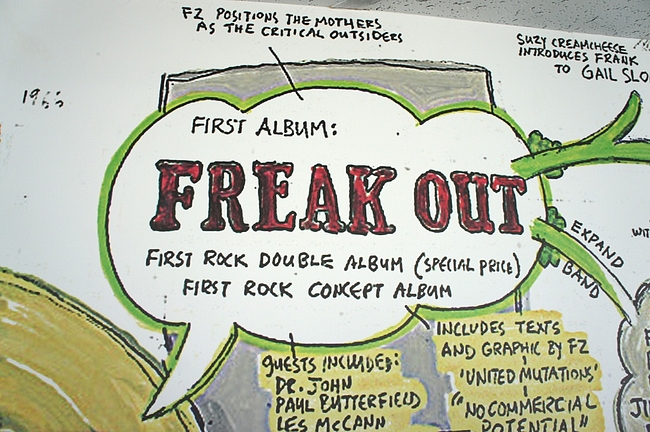 FZ POSITIONS THE MOTHERS
AS THE CRITICAL OUTSIDERS
SUZY CREAMCHEESE
INTRODUCES FRANK
TO GAIL SLO
FIRST ALBUM:
FREAK OUT
FIRST ROCK DOUBLE ALBUM (SPECIAL PRICE)
FIRST ROCK CONCEPT ALBUM
EXPAND
BAND
GUESTS INCLUDED:
DR. JOHN
PAUL BUTTERFIELD
LES McCANN
INCLUDES TEXTS
AND GRAPHIC BY FZ
'UNITED MUTATIONS'
"NO COMMERCIAL
POTENTIAL"